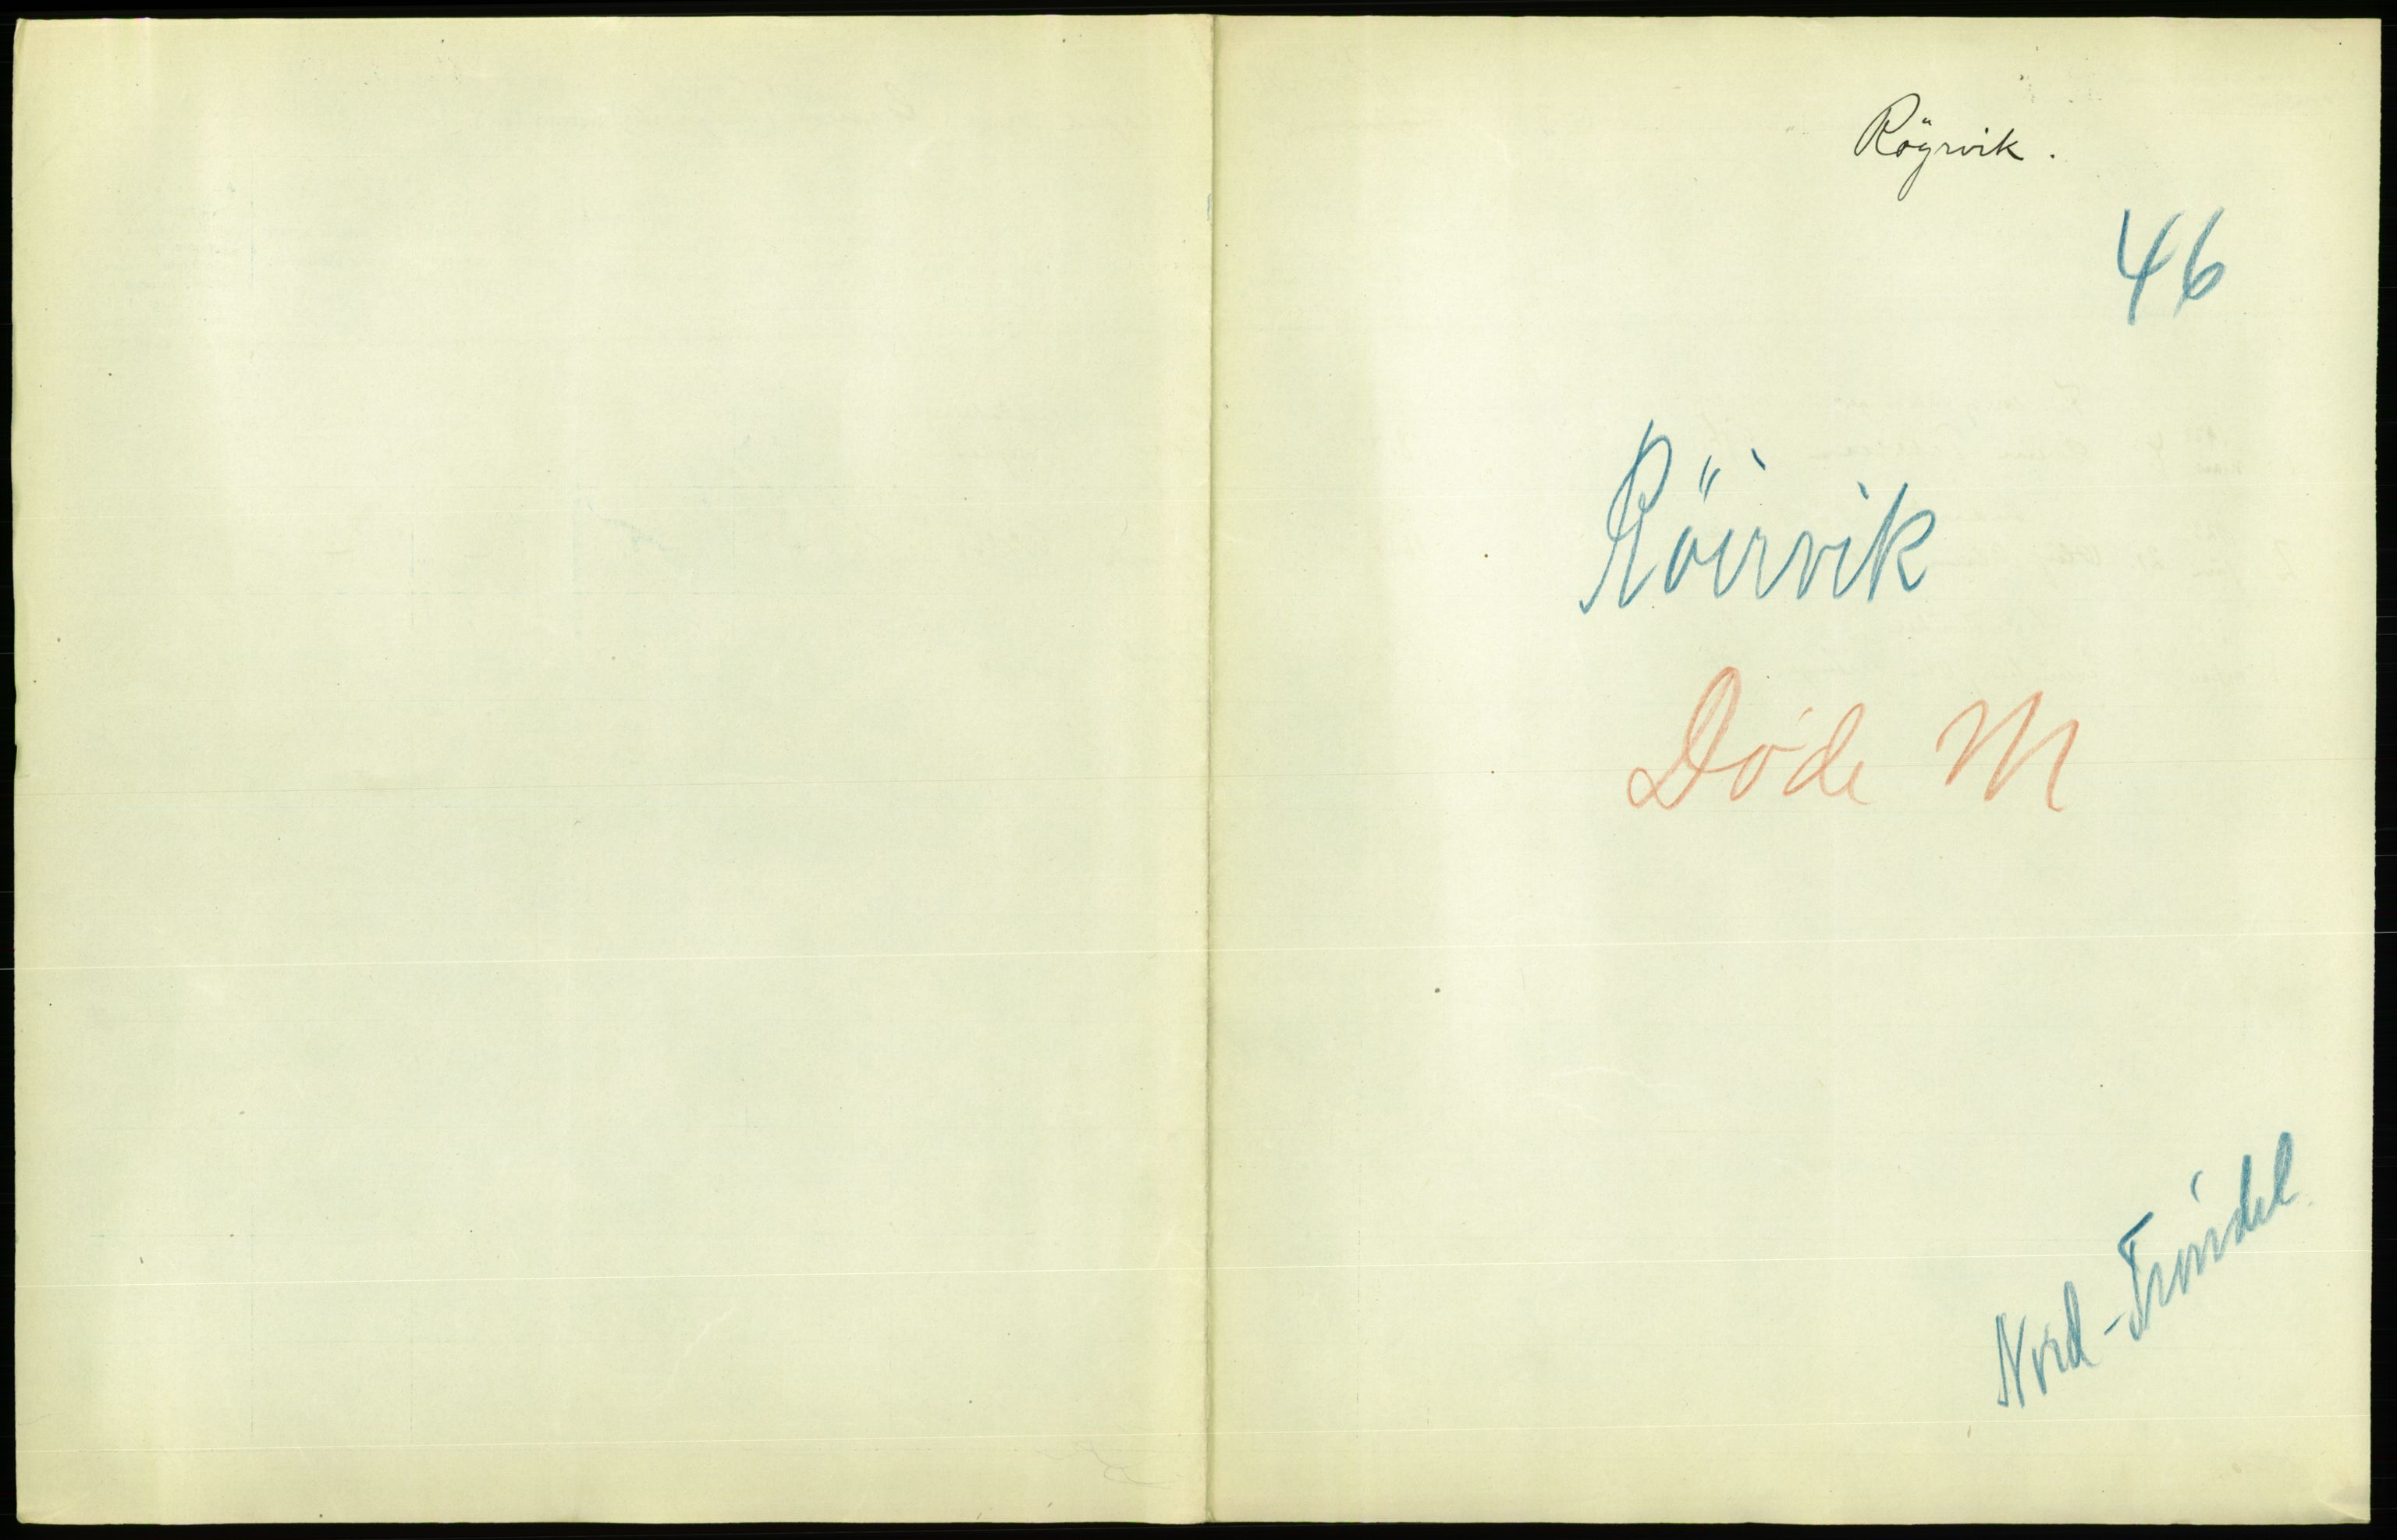 Röyrvik.
46
Röirvik
Døde M
Nord-Trøndel.